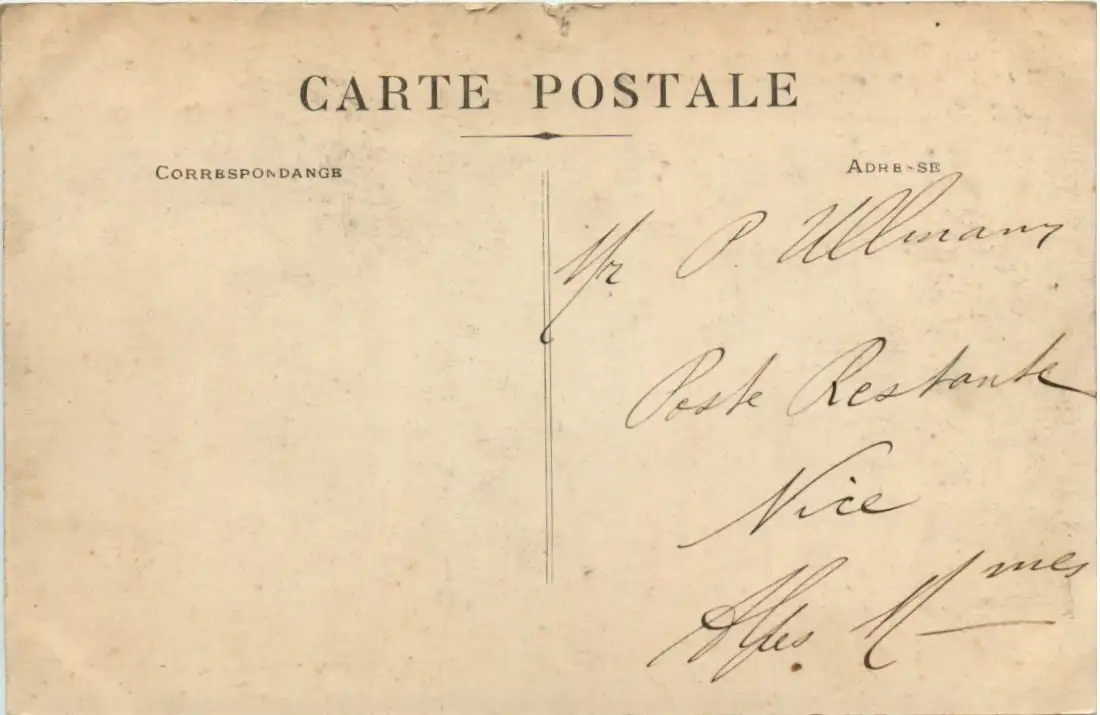 CARTE POSTALE
CORRESPONDANCE
ADRESSE
Mr P. Ullmann
Poste Restante
Nice
Alpes Mmes